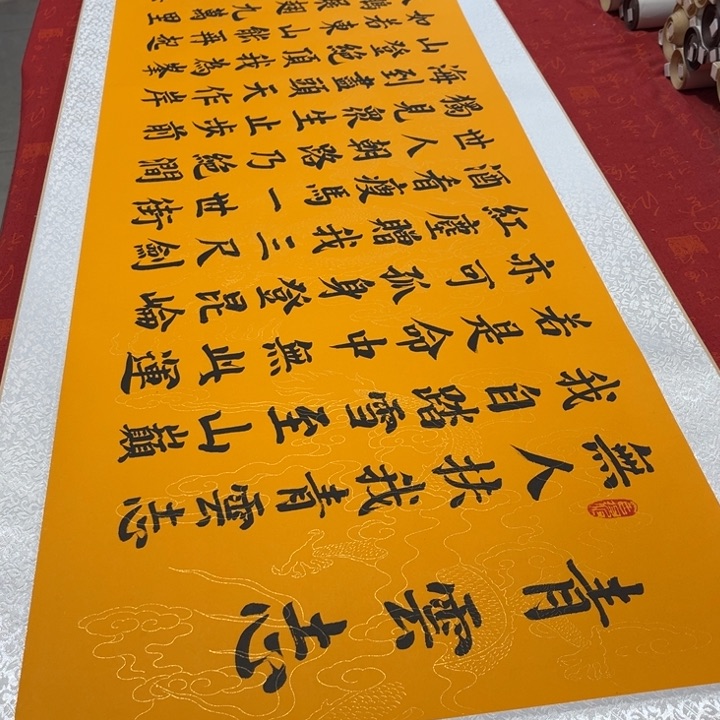 青雲志
無人扶我青雲志
我自踏雪至山巔
若是命中無此運
亦可孤身登昆崙
紅塵贈我三尺劍
酒看瘦馬一世街
世人朝路乃絕澗
獨見衆生止步前
海到盡頭天作岸
山登絕頂我為峯
如若東山能再起
鵬展翅九萬里